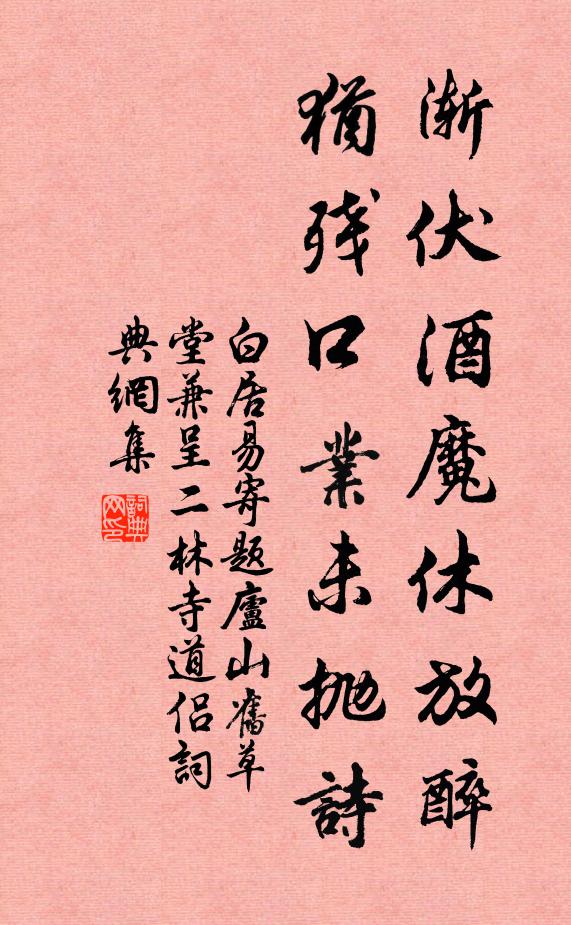 漸伏酒魔休放醉
猶残口業未抛詩
白居易寄题廬山舊草
堂兼呈二林寺道侣詞
典網集
詞典网印